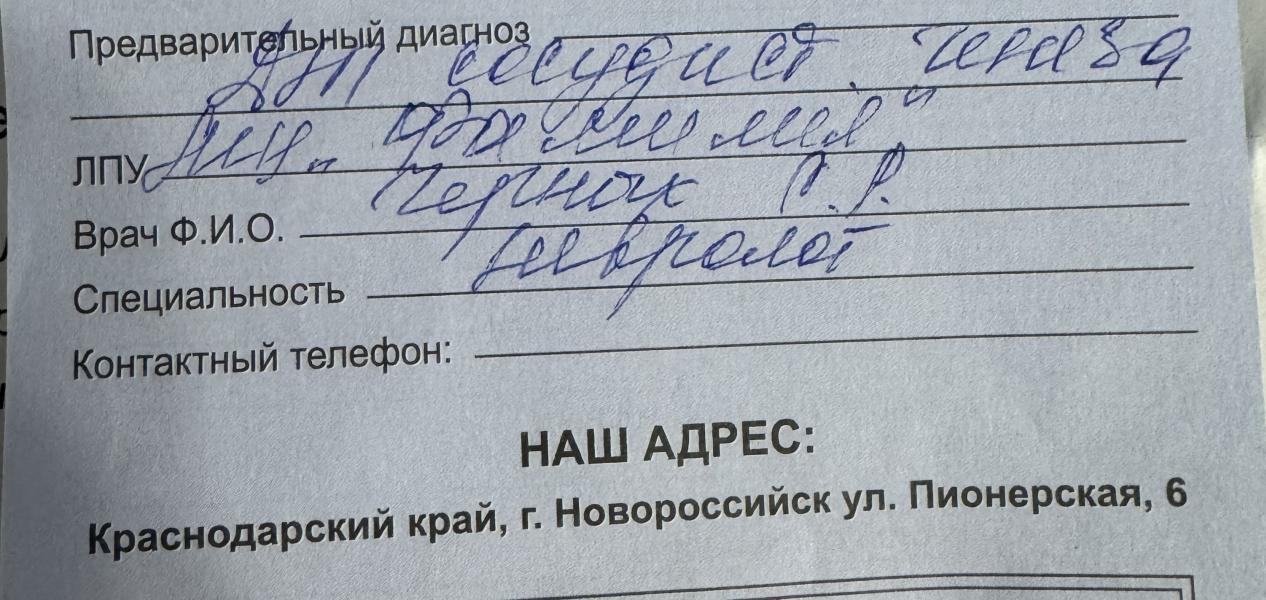 Предварительный диагноз
ДЭП сосудист. генеза
ЛПУ МЦ „Фамилия“
Черных С.Г.
Врач Ф.И.О.
невролог
Специальность
Контактный телефон:
НАШ АДРЕС:
Краснодарский край, г. Новороссийск ул. Пионерская, 6